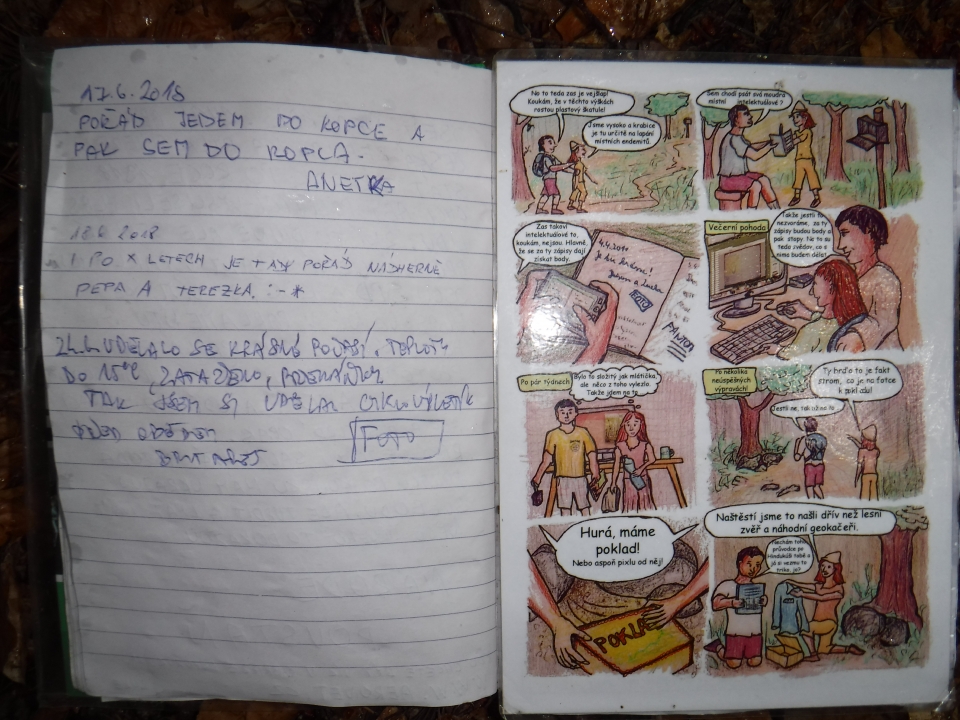 17.6.2018
POŘÁD JEDEM DO KOPCE A
PAK SEM DO KOPCA.
ANETKA
2018
I PO X LETECH JE TAM POŘÁD NÁDHERNĚ
PEPA A TEREZKA. :-*
UDĚLALO SE KRÁSNÉ POČASÍ,
DO 15°C, ZATAŽENO,
TAK JSEM SI UDĚLAL CYKLOVÝLETÍK
FOTO
No to teda zas je vejšlap!
Koukám, že v těchto výškách
rostou plastový škatule!
Jsme vysoko a krabice
je tu určitě na lapání
místních endemitů.
Sem chodí psát svá moudra
místní intelektuálové?
Zas takoví
intelektuálové to,
koukám, nejsou. Hlavně,
že se za ty zápisy dají
získat body.
4.4.2010
FOTO
Večerní pohoda
Takže jestli to
nezvoráme, za ty
zápisy budou body a
pak stopy. Ne to su
teda zvědav, co s
nima budem dělat
Po pár týdnech
Bylo to složitý jak mlátička,
ale něco z toho vylezlo.
Takže jdem na to
Po několika
neúspěšných
výpravách!
Ty brďo to je fakt
strom, co je na fotce
k pokladu!
Jestli ne, tak už na to
Hurá, máme
poklad!
Nebo aspoň pixlu od něj!
POKLAD
Naštěstí jsme to našli dřív než lesní
zvěř a náhodní geokačeři.
Nechám toho
průvodce po
Hindúkúši tobě a
já si vezmu to
triko, jo?